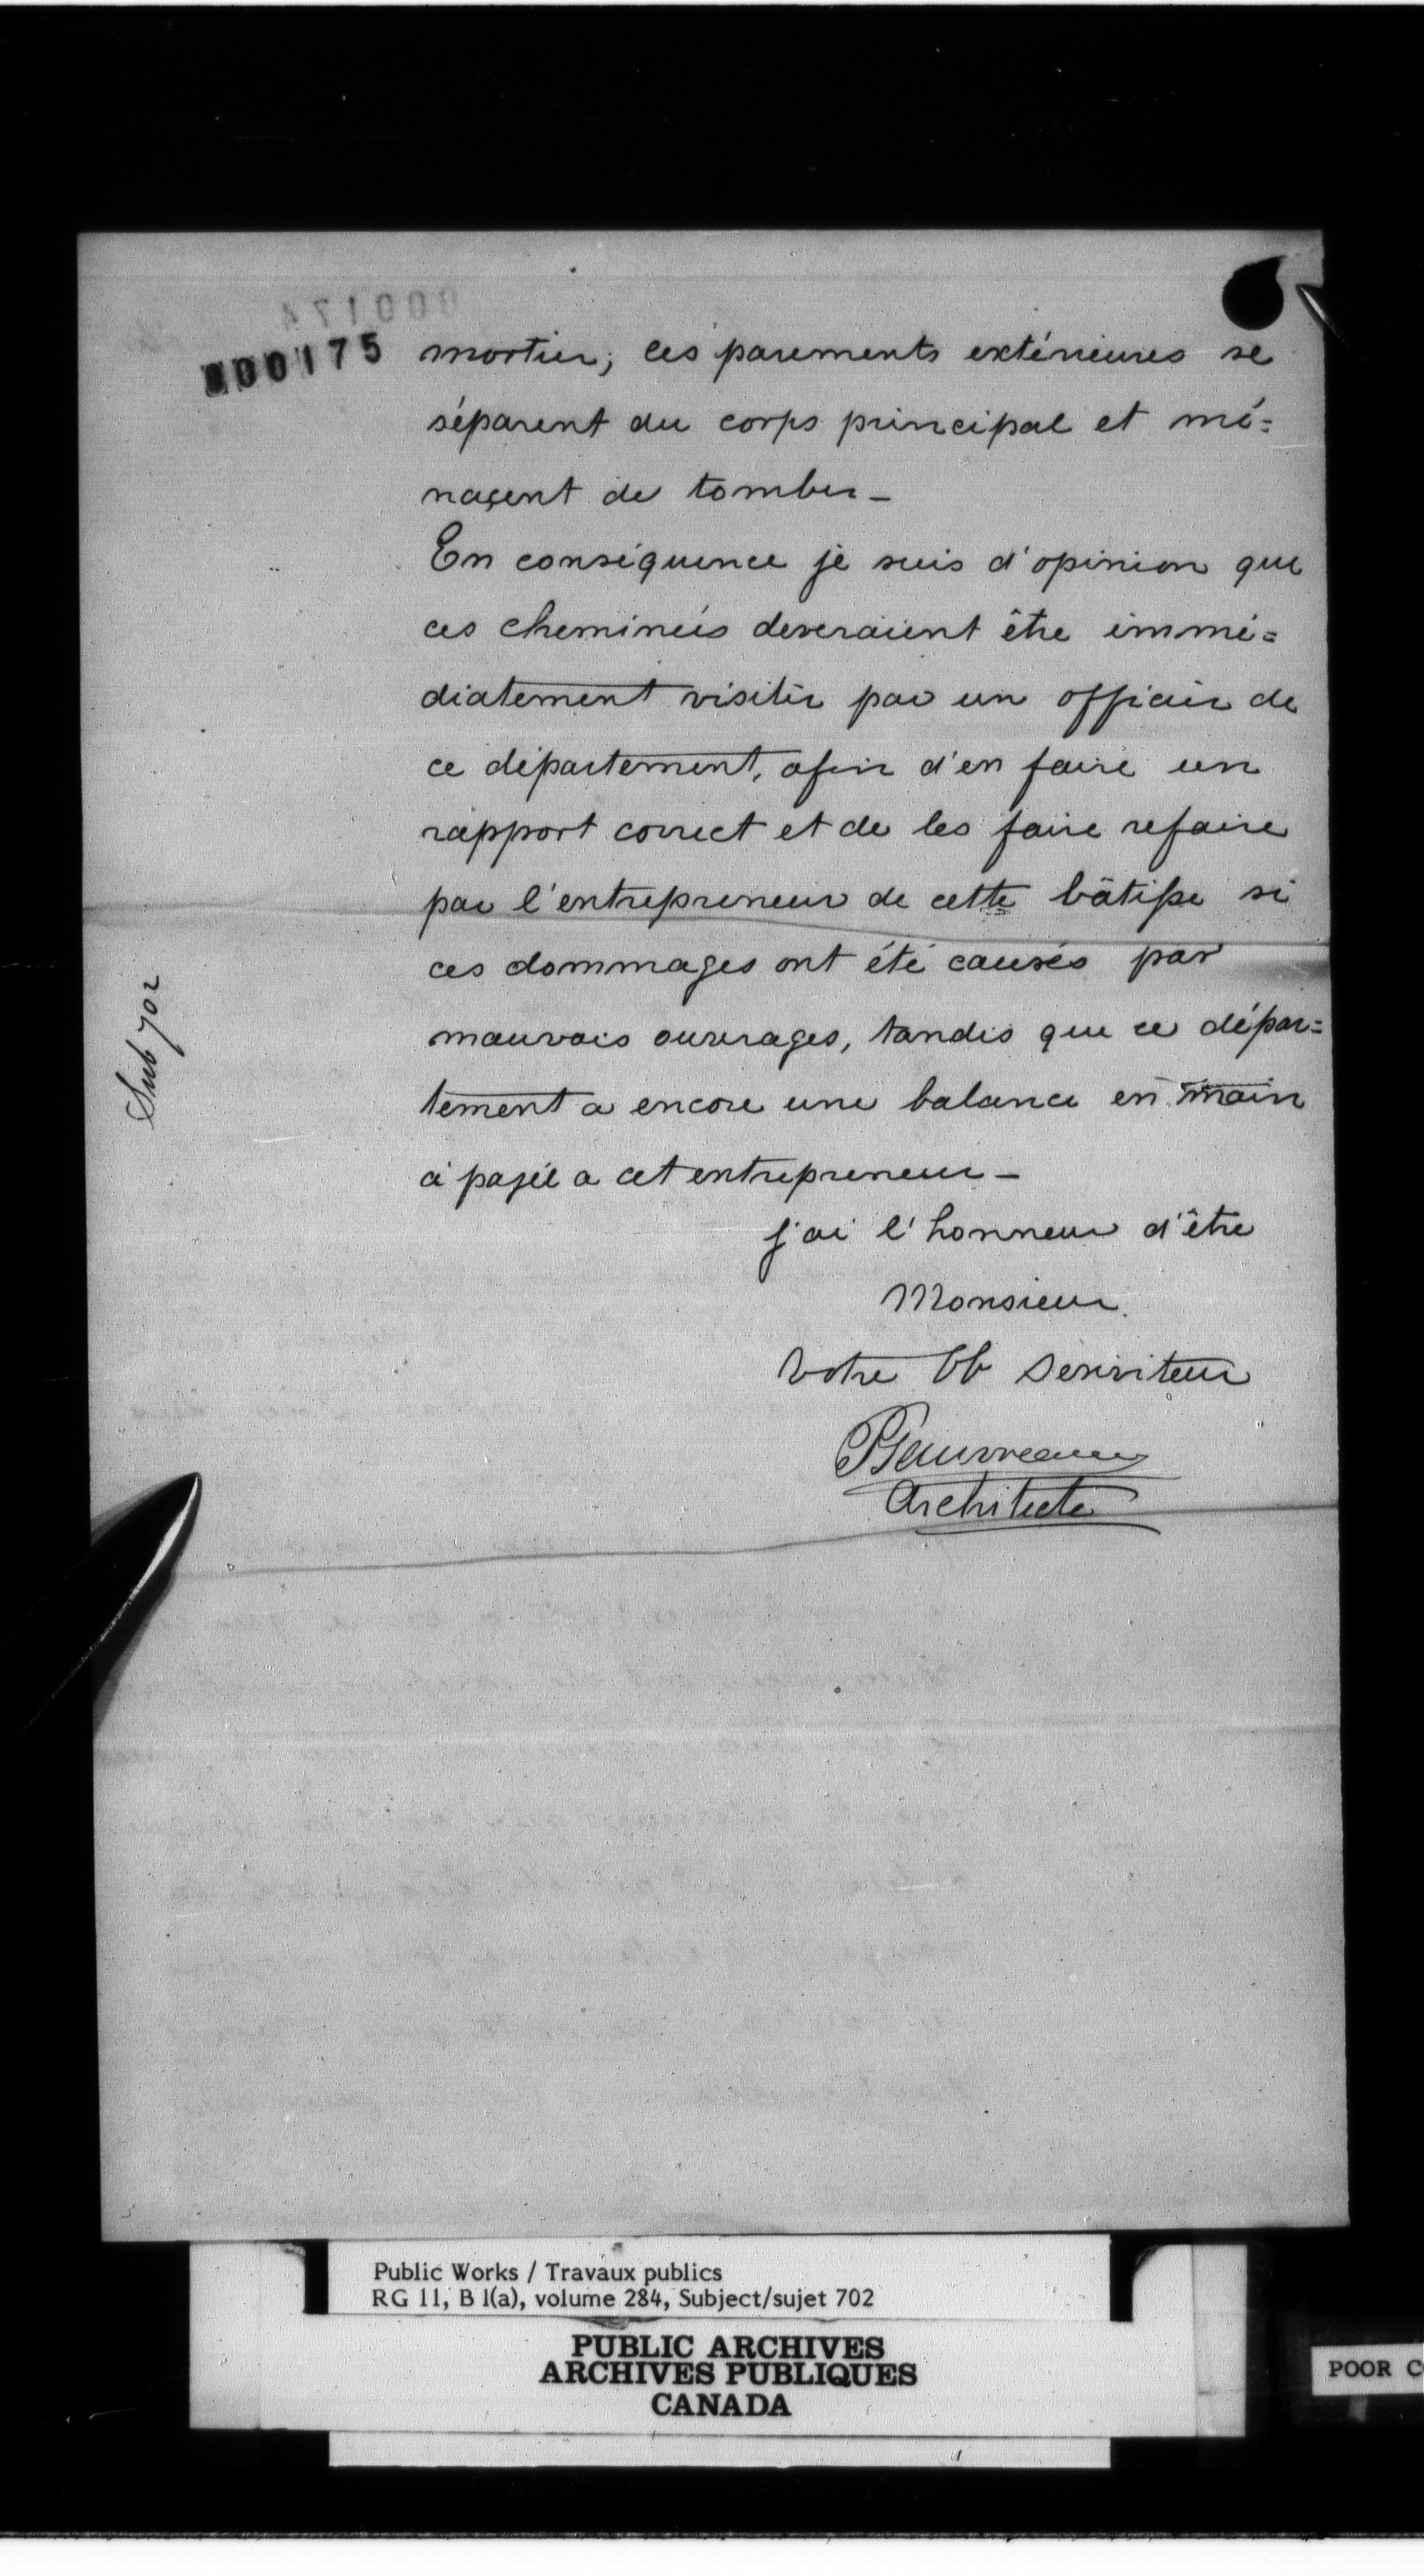 000174
000175
mortier; ces parements extérieures se
séparent du corps principal et mé=
naçent de tomber_
En conséquence je suis d'opinion que
ces cheminées deveraient être immé=
diatement visitér par un officiér de
ce département, afin d'en faire un
rapport correct et de les faire refaire
par l'entrepreneur de cette bâtisse si
ces dommages ont été causés par
mauvais ouvrages, tandis que ce dépar=
tement a encore une balance en main
à payée a cet entrepreneur_
j'ai l'honneur d'être
Monsieur
Votre Ob Serviteur
PGauvreau
Architecte
Sub 702
Public Works / Travaux publics
RG 11, B 1(a), volume 284, Subject/sujet 702
PUBLIC ARCHIVES
ARCHIVES PUBLIQUES
CANADA
POOR C